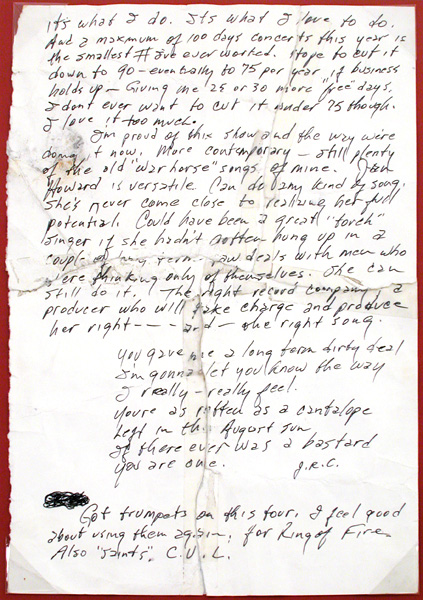 it's what I do. It's what I love to do.
And a maximum of 100 days concerts this year is
the smallest # I've ever worked. Hope to cut it
down to 90 - eventually to 75 per year, if business
holds up - Giving me 25 or 30 more "free" days.
I dont ever want to cut it under 75 though.
I love it too much.
I'm proud of this show and the way we're
doing it now. More contemporary - still plenty
of the old "war horse" songs of mine. Jan
Howard is versatile. Can do any kind of song.
She's never come close to realizing her full
potential. Could have been a great "torch"
singer if she hadn't gotten hung up in a
couple of long term deals with men who
were thinking only of themselves. She can
still do it. The right record company - a
producer who will take charge and produce
her right - - - and - the right song.
you gave me a long term dirty deal
I'm gonna let you know the way
I really - really feel.
youre as rotten as a cantalope
Left in the August sun
If there ever was a bastard
you are one. J.R.C.
Got trumpets on this tour. I feel good
about using them again, for Ring of Fire
Also "Saints". C.U.L.